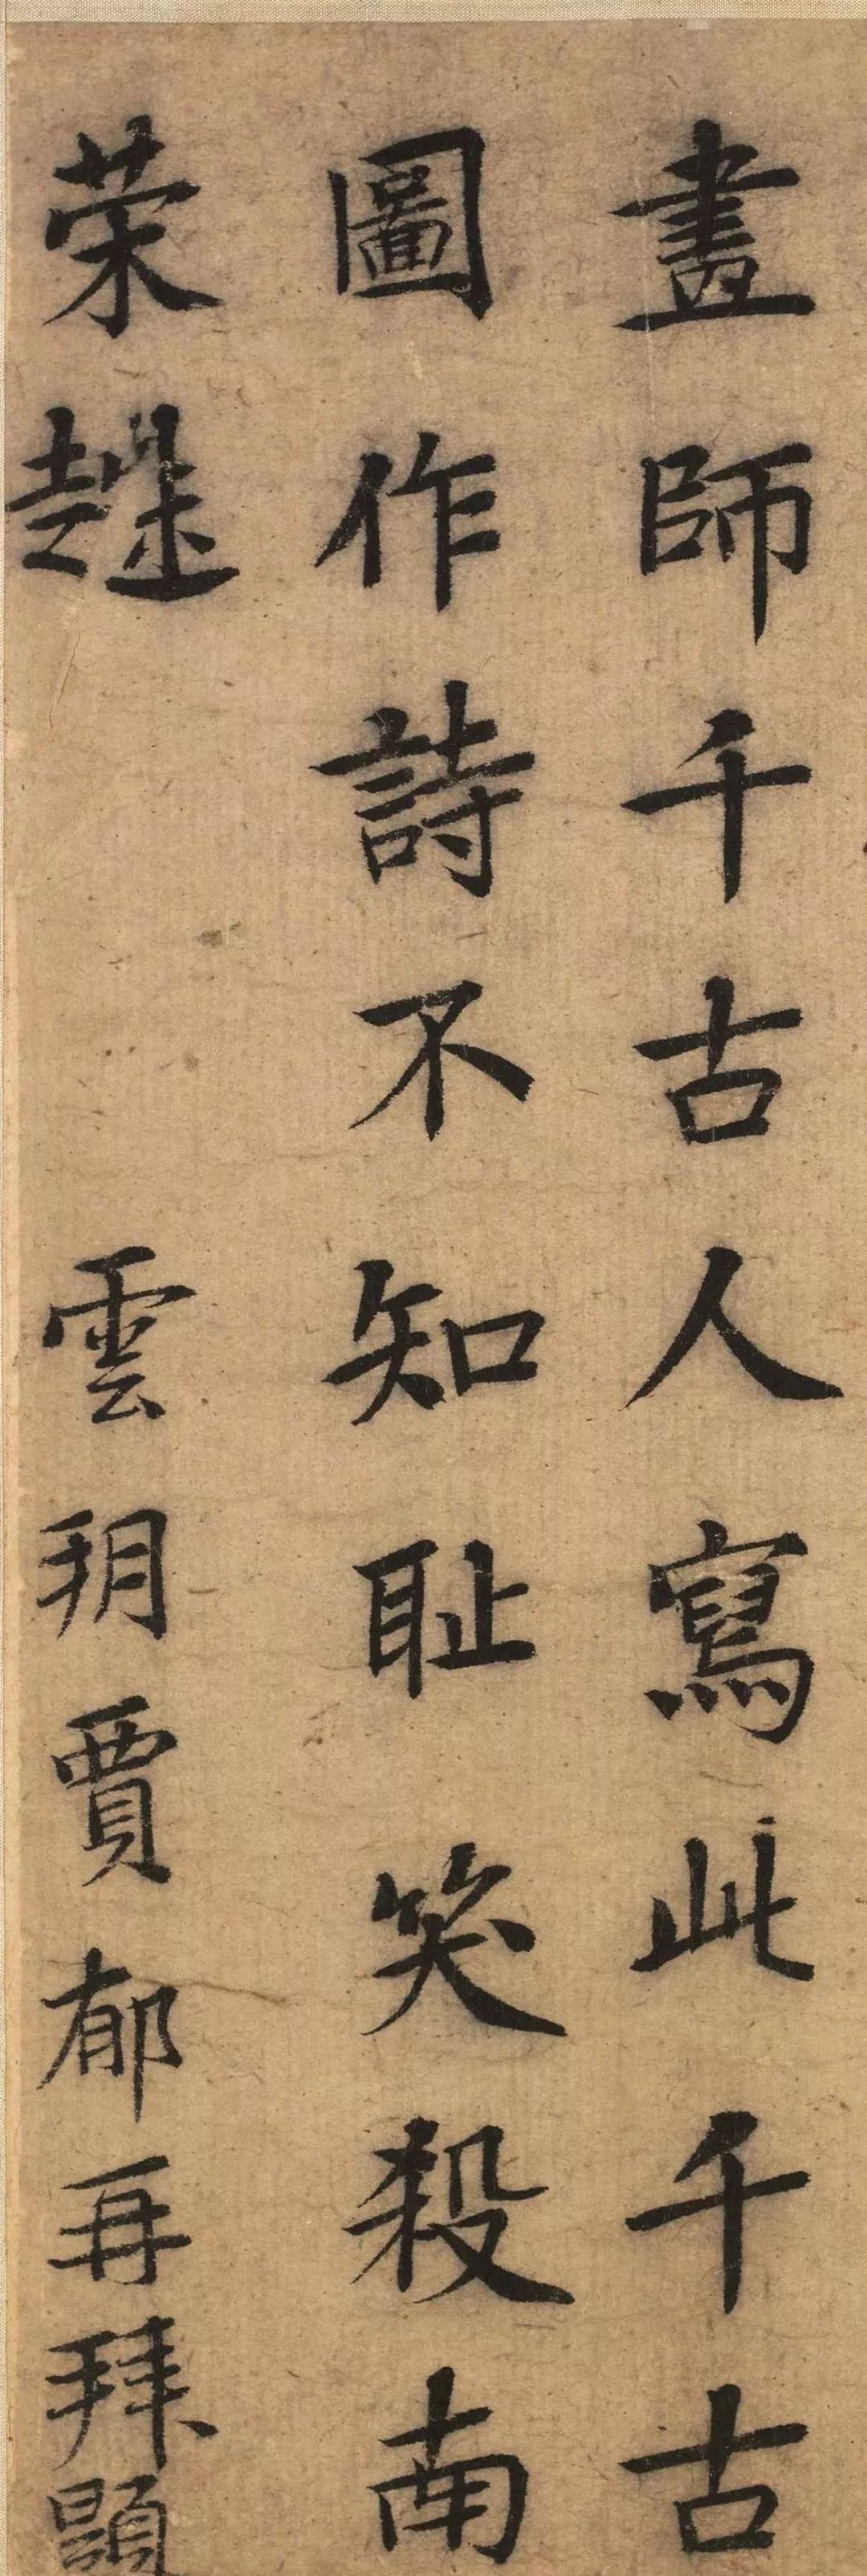 畫師千古人寫此千古
圖作詩不知耻笑殺南
荣趎
雲玥賈郁再拜題